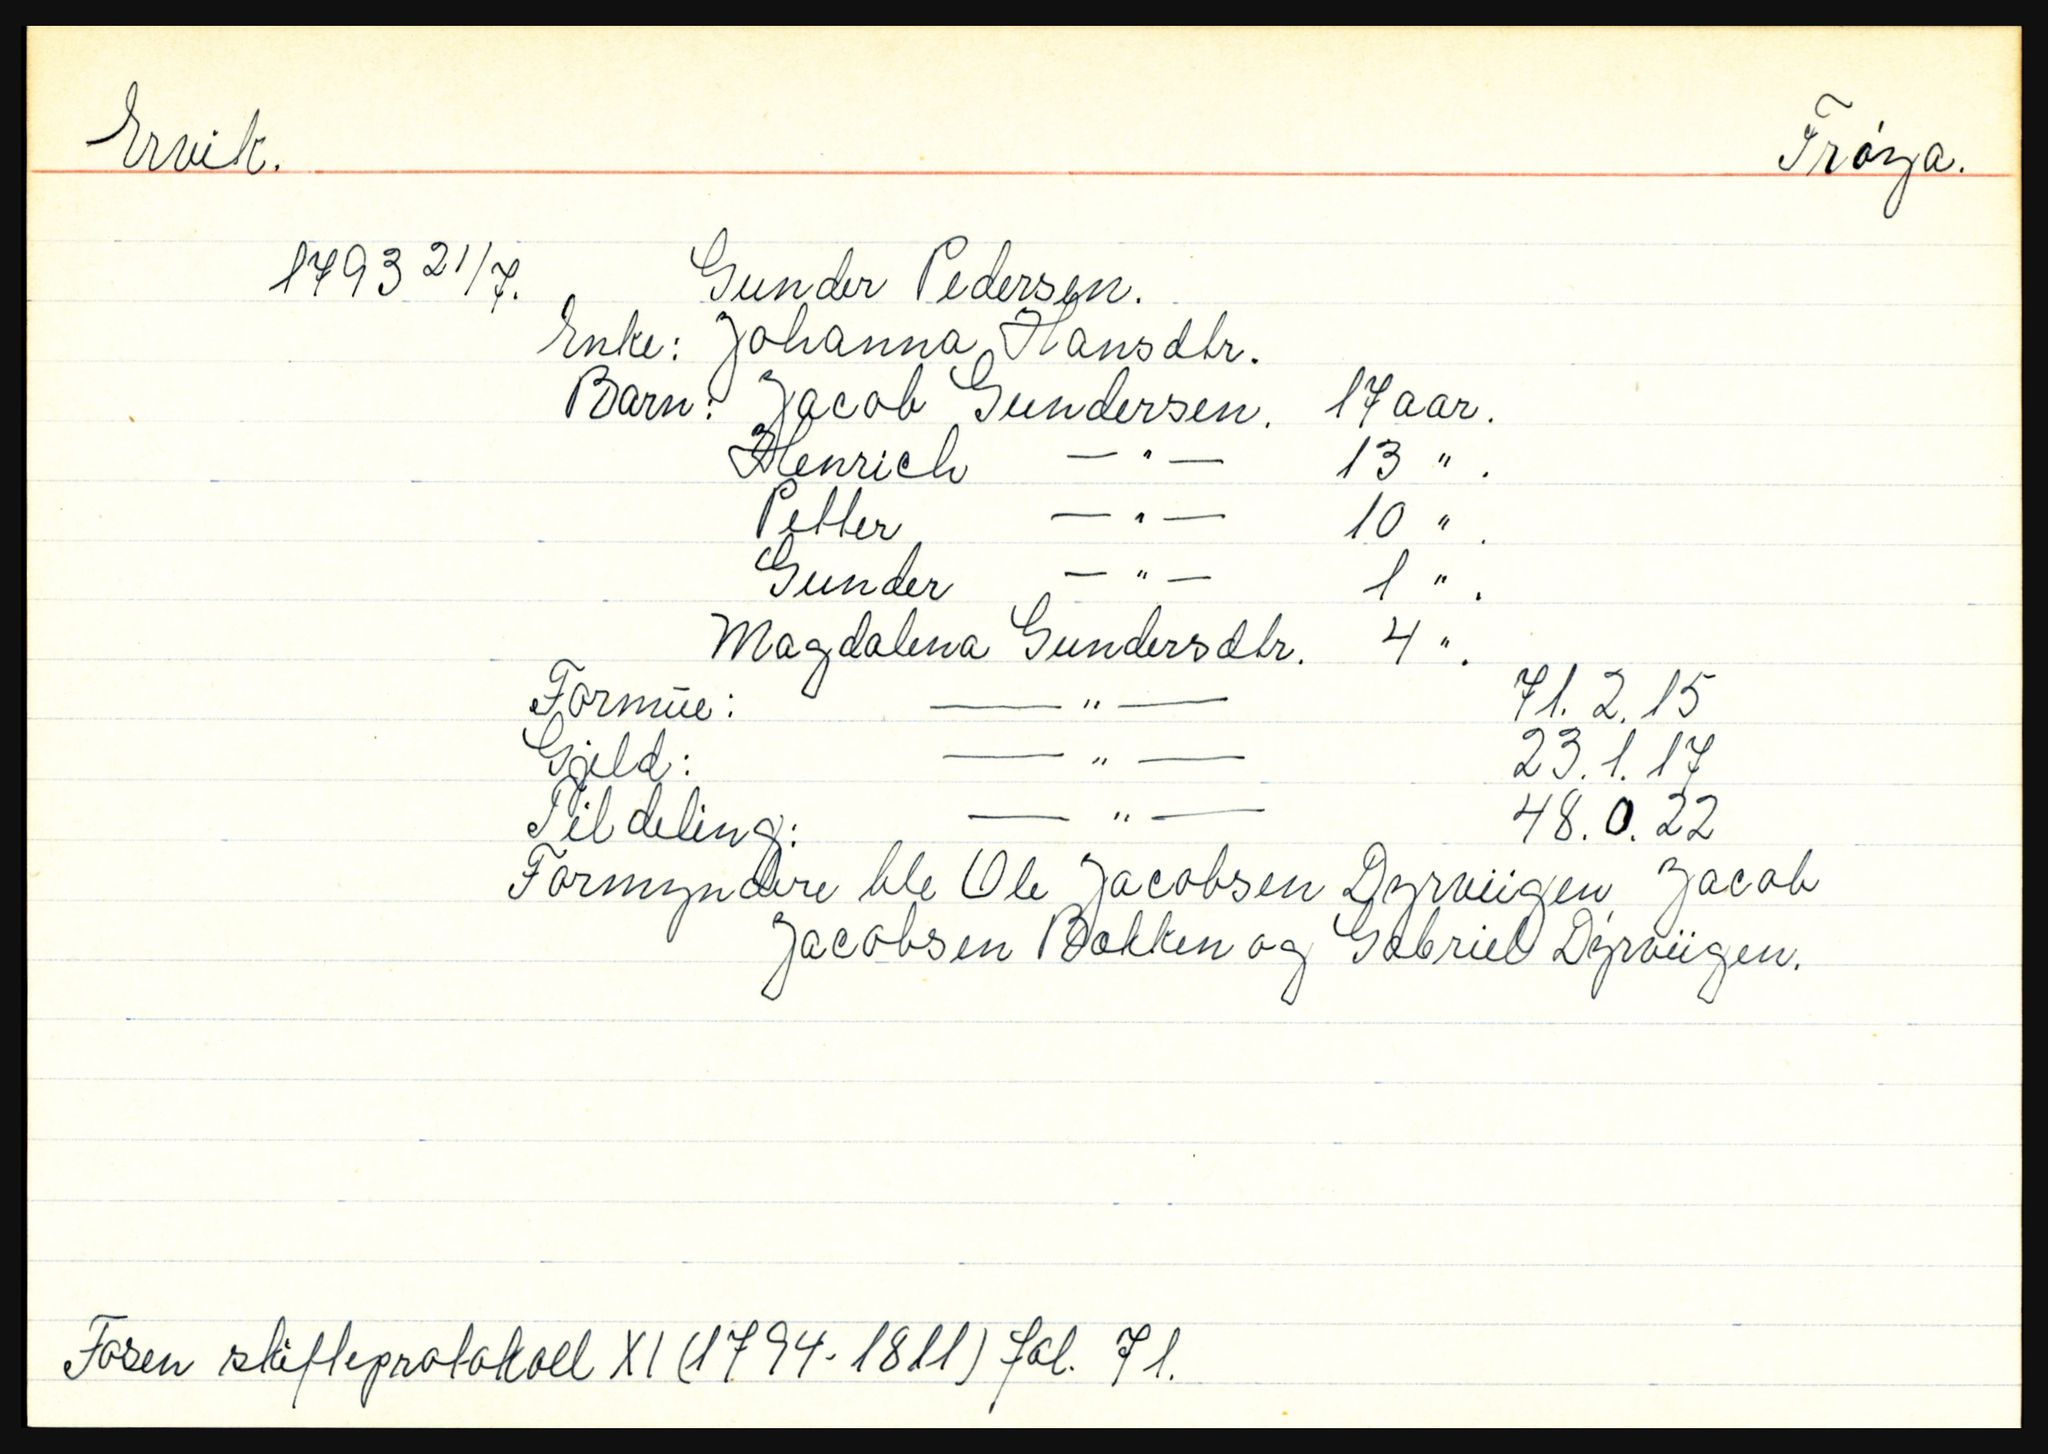 Ervik. Frøya.
1793 21/7. Gunder Pedersen.
Enke: Johanna Hansdtr.
Barn: Jacob Gundersen. 17 aar.
Henrich — " — 13 " .
Petter — " — 10 " .
Gunder — " — 1 " .
Magdalena Gundersdtr. 4 " .
Formue: — " — 71. 2. 15
Gjeld: — " — 23. 1. 17
Til deling: — " — 48. 0. 22
Formyndere ble Ole Jacobsen Dyrviigen Jacob
Jacobsen Bakken og Gabriel Dyrviigen.
Fosen skifteprotokoll XI (1794-1811) fol. 71.